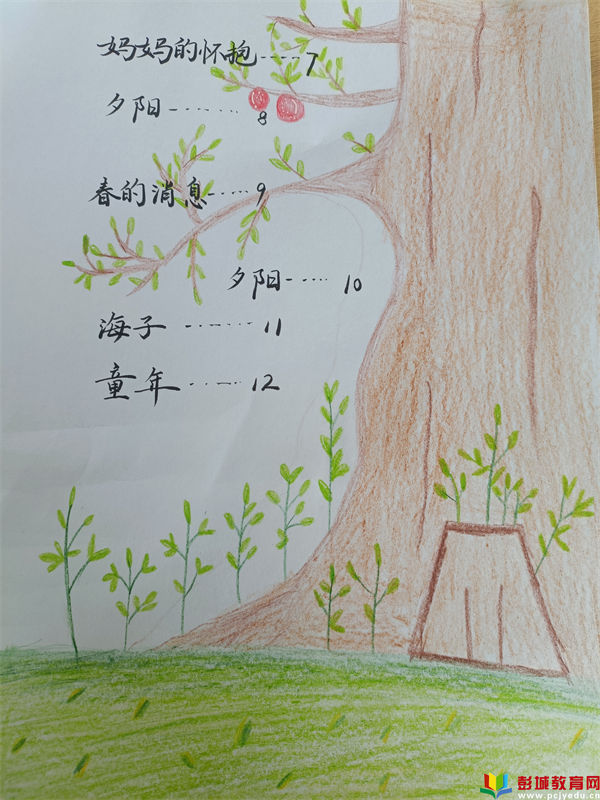 妈妈的怀抱-----7
夕阳------8
春的消息-----9
夕阳------10
海子------11
童年------12
彭城教育网
www.pcjyedu.cn